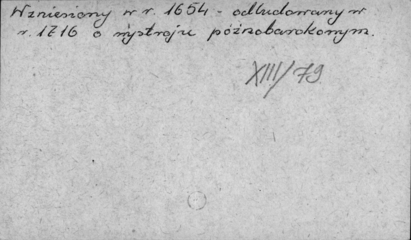 Wzniesiony w r. 1654 - odbudowany w
r. 1716 o wystroju późnobarokowym.
XIII/79